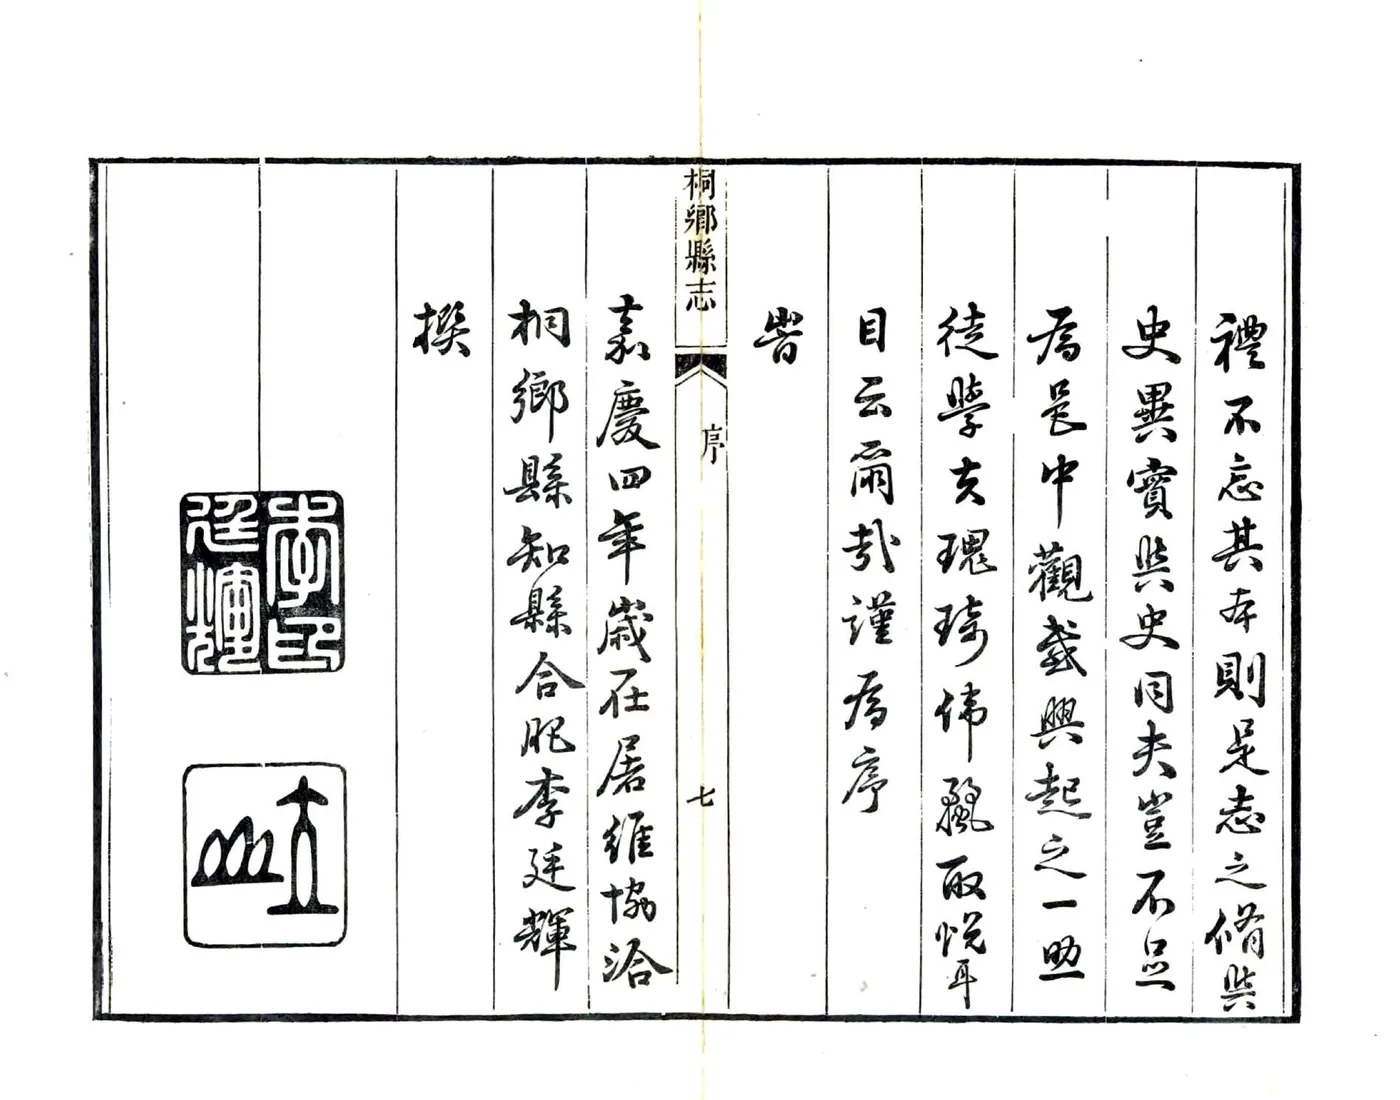 禮不忘其本則是志之脩與
史異實與史同夫豈不足
爲邑中觀感興起之一助
徒擧夫瑰琦偉取悅耳
目云爾哉謹爲序
旹
桐鄉縣志
序
七
嘉慶四年歲在屠維協洽
桐鄉縣知縣合肥李廷輝
撰
李印廷輝
立山